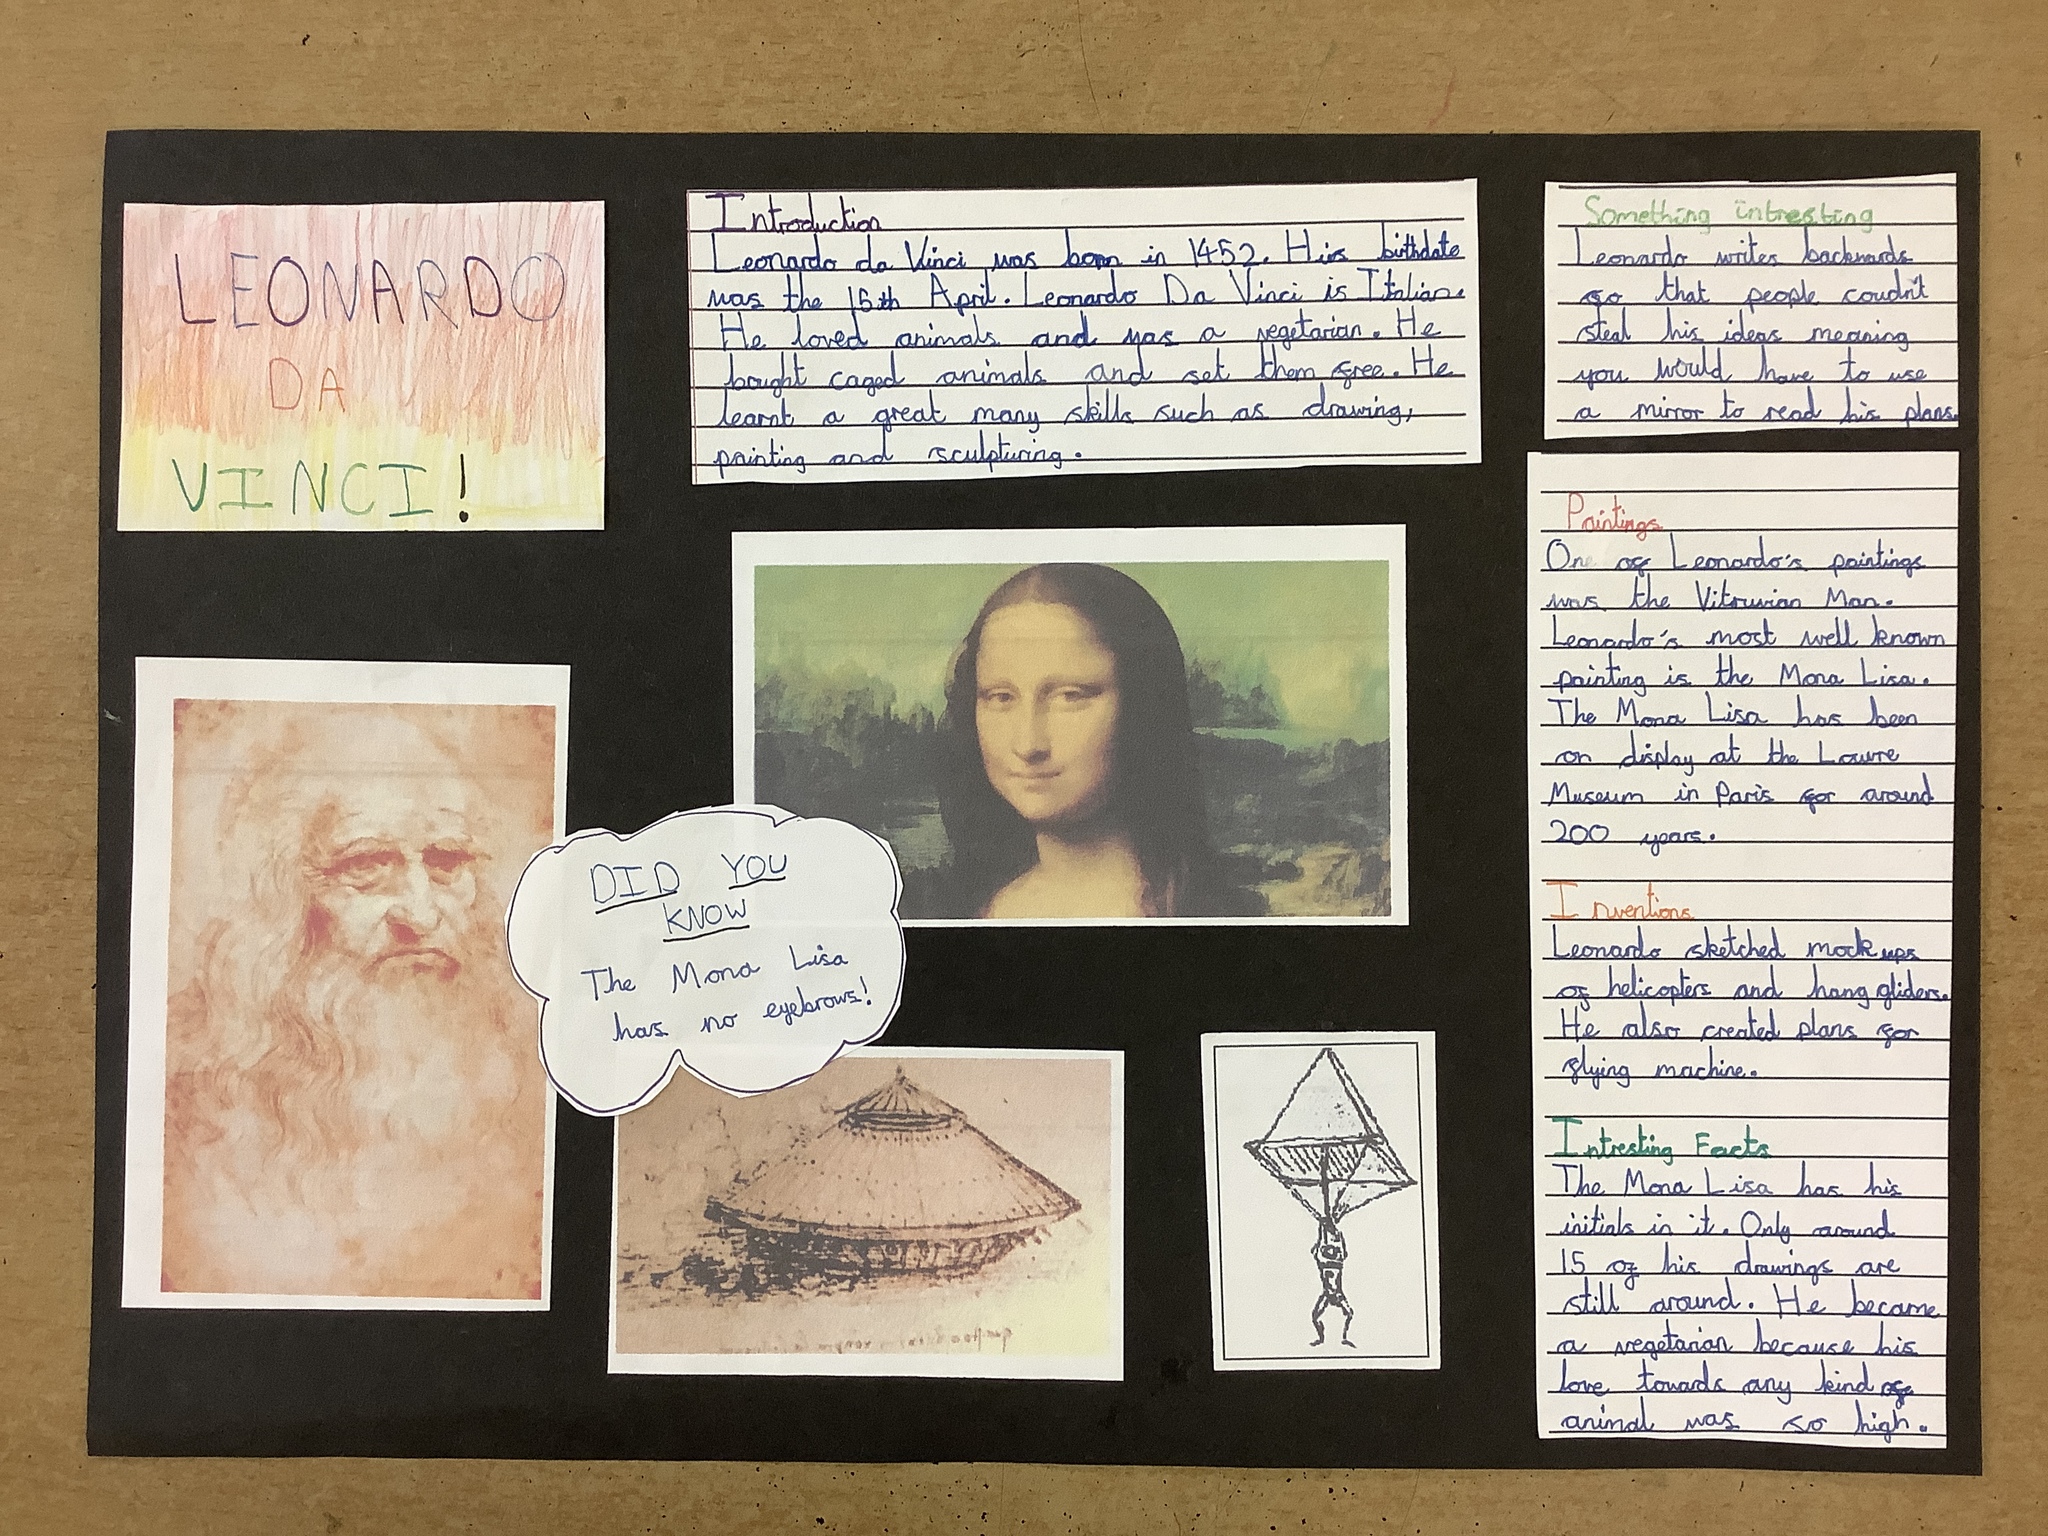 LEONARDO
DA
VINCI!
Introduction
Leonardo da Vinci was born in 1452. His birthdate
was the 15th April. Leonardo Da Vinci is Italian.
He loved animals and was a vegetarian. He
bought caged animals and set them free. He
learnt a great many skills such as drawing,
painting and sculpturing.
Something intresting
Leonardo writes backwards
so that people coudn't
steal his ideas meaning
you would have to use
a mirror to read his plans.
Paintings
One of Leonardo's paintings
was the Vitruvian Man.
Leonardo's most well known
painting is the Mona Lisa.
The Mona Lisa has been
on display at the Louvre
Museum in Paris for around
200 years.
Inventions
Leonardo sketched mock ups
of helicopters and hang gliders.
He also created plans for
flying machine.
Intresting Facts
The Mona Lisa has his
initials in it. Only around
15 of his drawings are
still around. He became
a vegetarian because his
love towards any kind of
animal was so high.
DID YOU
KNOW
The Mona Lisa
has no eyebrows!